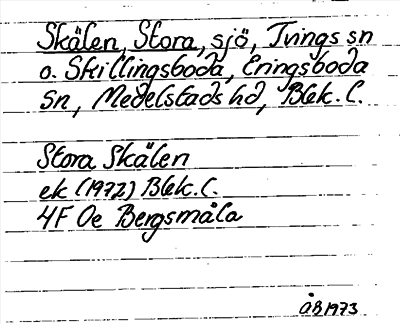 Skälen, Stora, sjö, Tvings sn
o. Skillingsboda, Eringsboda
sn, Medelstads hd, Blek. l.
Stora Skälen
ek (1972) Blek. l.
4F 0e Bergsmåla
ÅB 1973